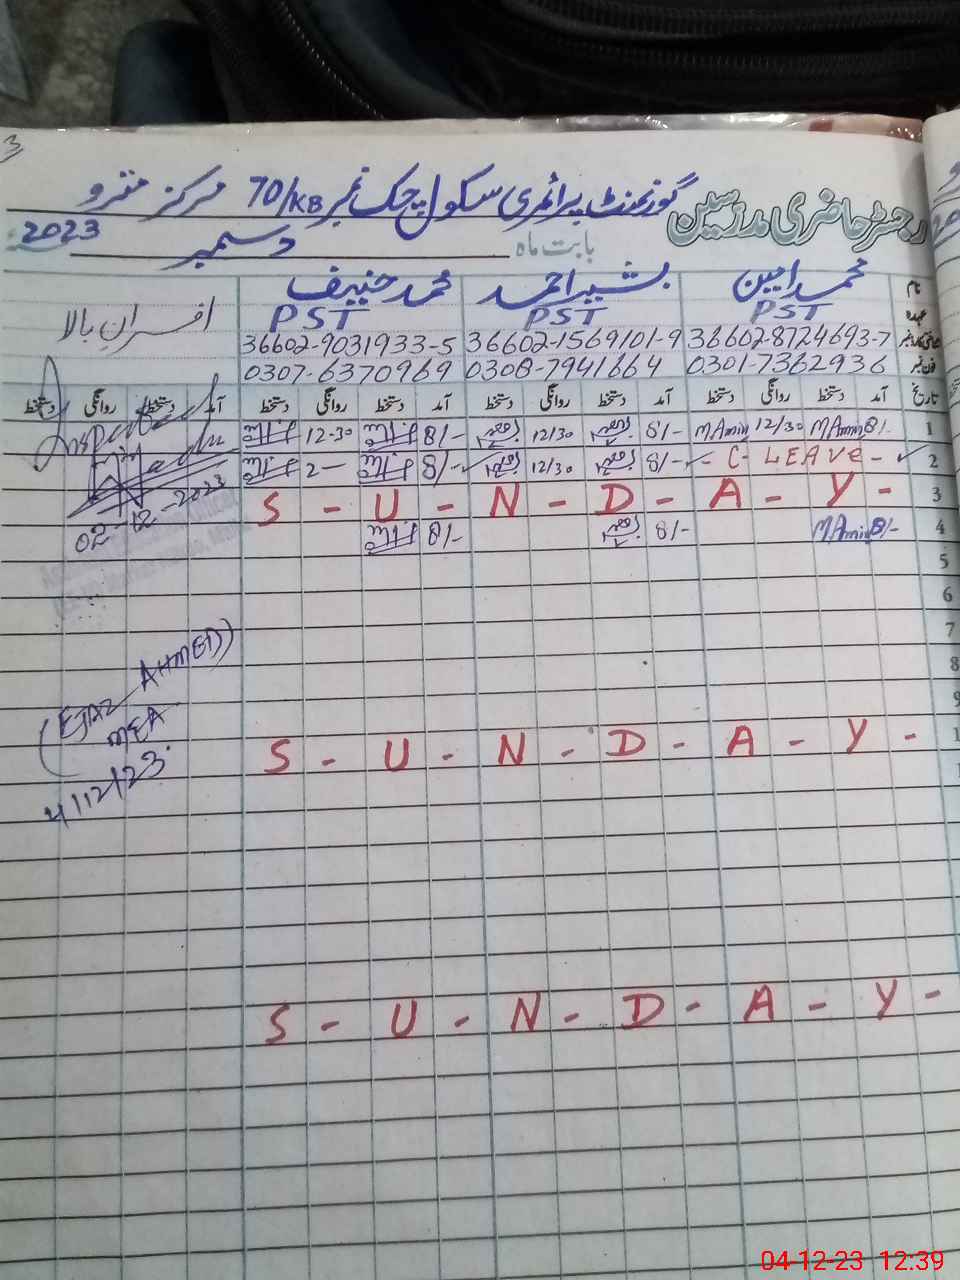 3
رجسٹر حاضری مدرسین گورنمنٹ پرائمری سکول چک نمبر 70/KB مرکز مترو
بابت ماہ دسمبر 2023
نام محمد امین بشیر احمد محمد حنیف افسران بالا
عہدہ PST PST PST
36602-8724693-7 36602-1569101-9 36602-9031933-5
فون نمبر 0301-7362936 0308-7941664 0307-6370969
تاریخ آمد دستخط روانگی دستخط آمد دستخط روانگی دستخط آمد دستخط روانگی دستخط آمد دستخط روانگی دستخط
1 8/- MAmin 12/30 MAmin 8/- 12/30 8/- 12-30
2 - C - LEAVE - 8/- 12/30 8/- 2-
3 S - U - N - D - A - Y -
4 8/- MAmin 8/- 8/-
Inspected
02-12-2023
5
6
7
8
9
(EJAZ AHMED)
MEA
4/12/23
1 S - U - N - D - A - Y -
1
S - U - N - D - A - Y -
04-12-23 12:39